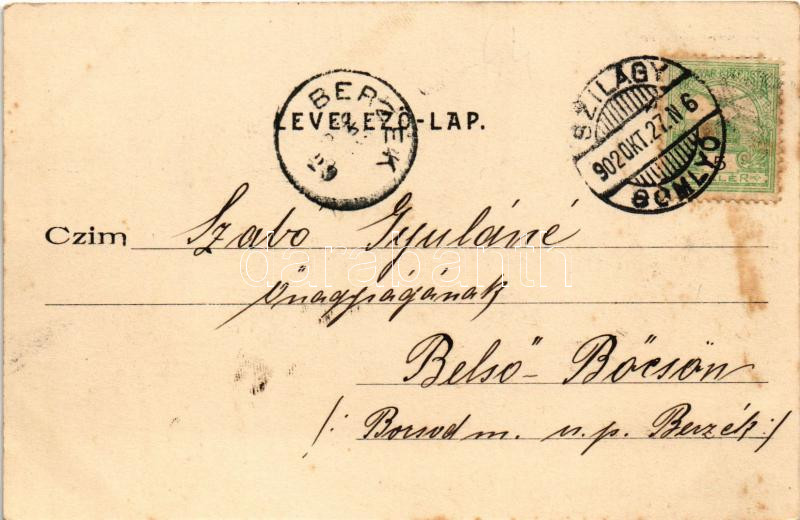 BERZÉK
29
LEVELEZŐ-LAP.
SZILÁGY
902 OKT. 27. N 6
SOMLYÓ
5
Czim Szabo Gyuláné
őnagyságának
Belső-Bőcsön
/: Borsod m. u. p. Berzék :/
darabanth